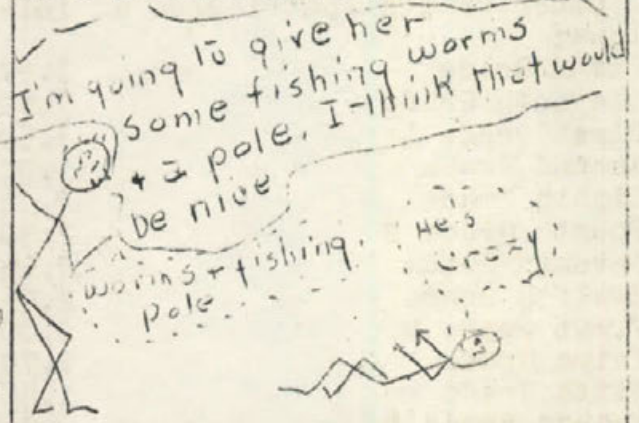 I'm going to give her
some fishing worms
+ a pole. I think that would
be nice
worms + fishing
pole
He's
crazy